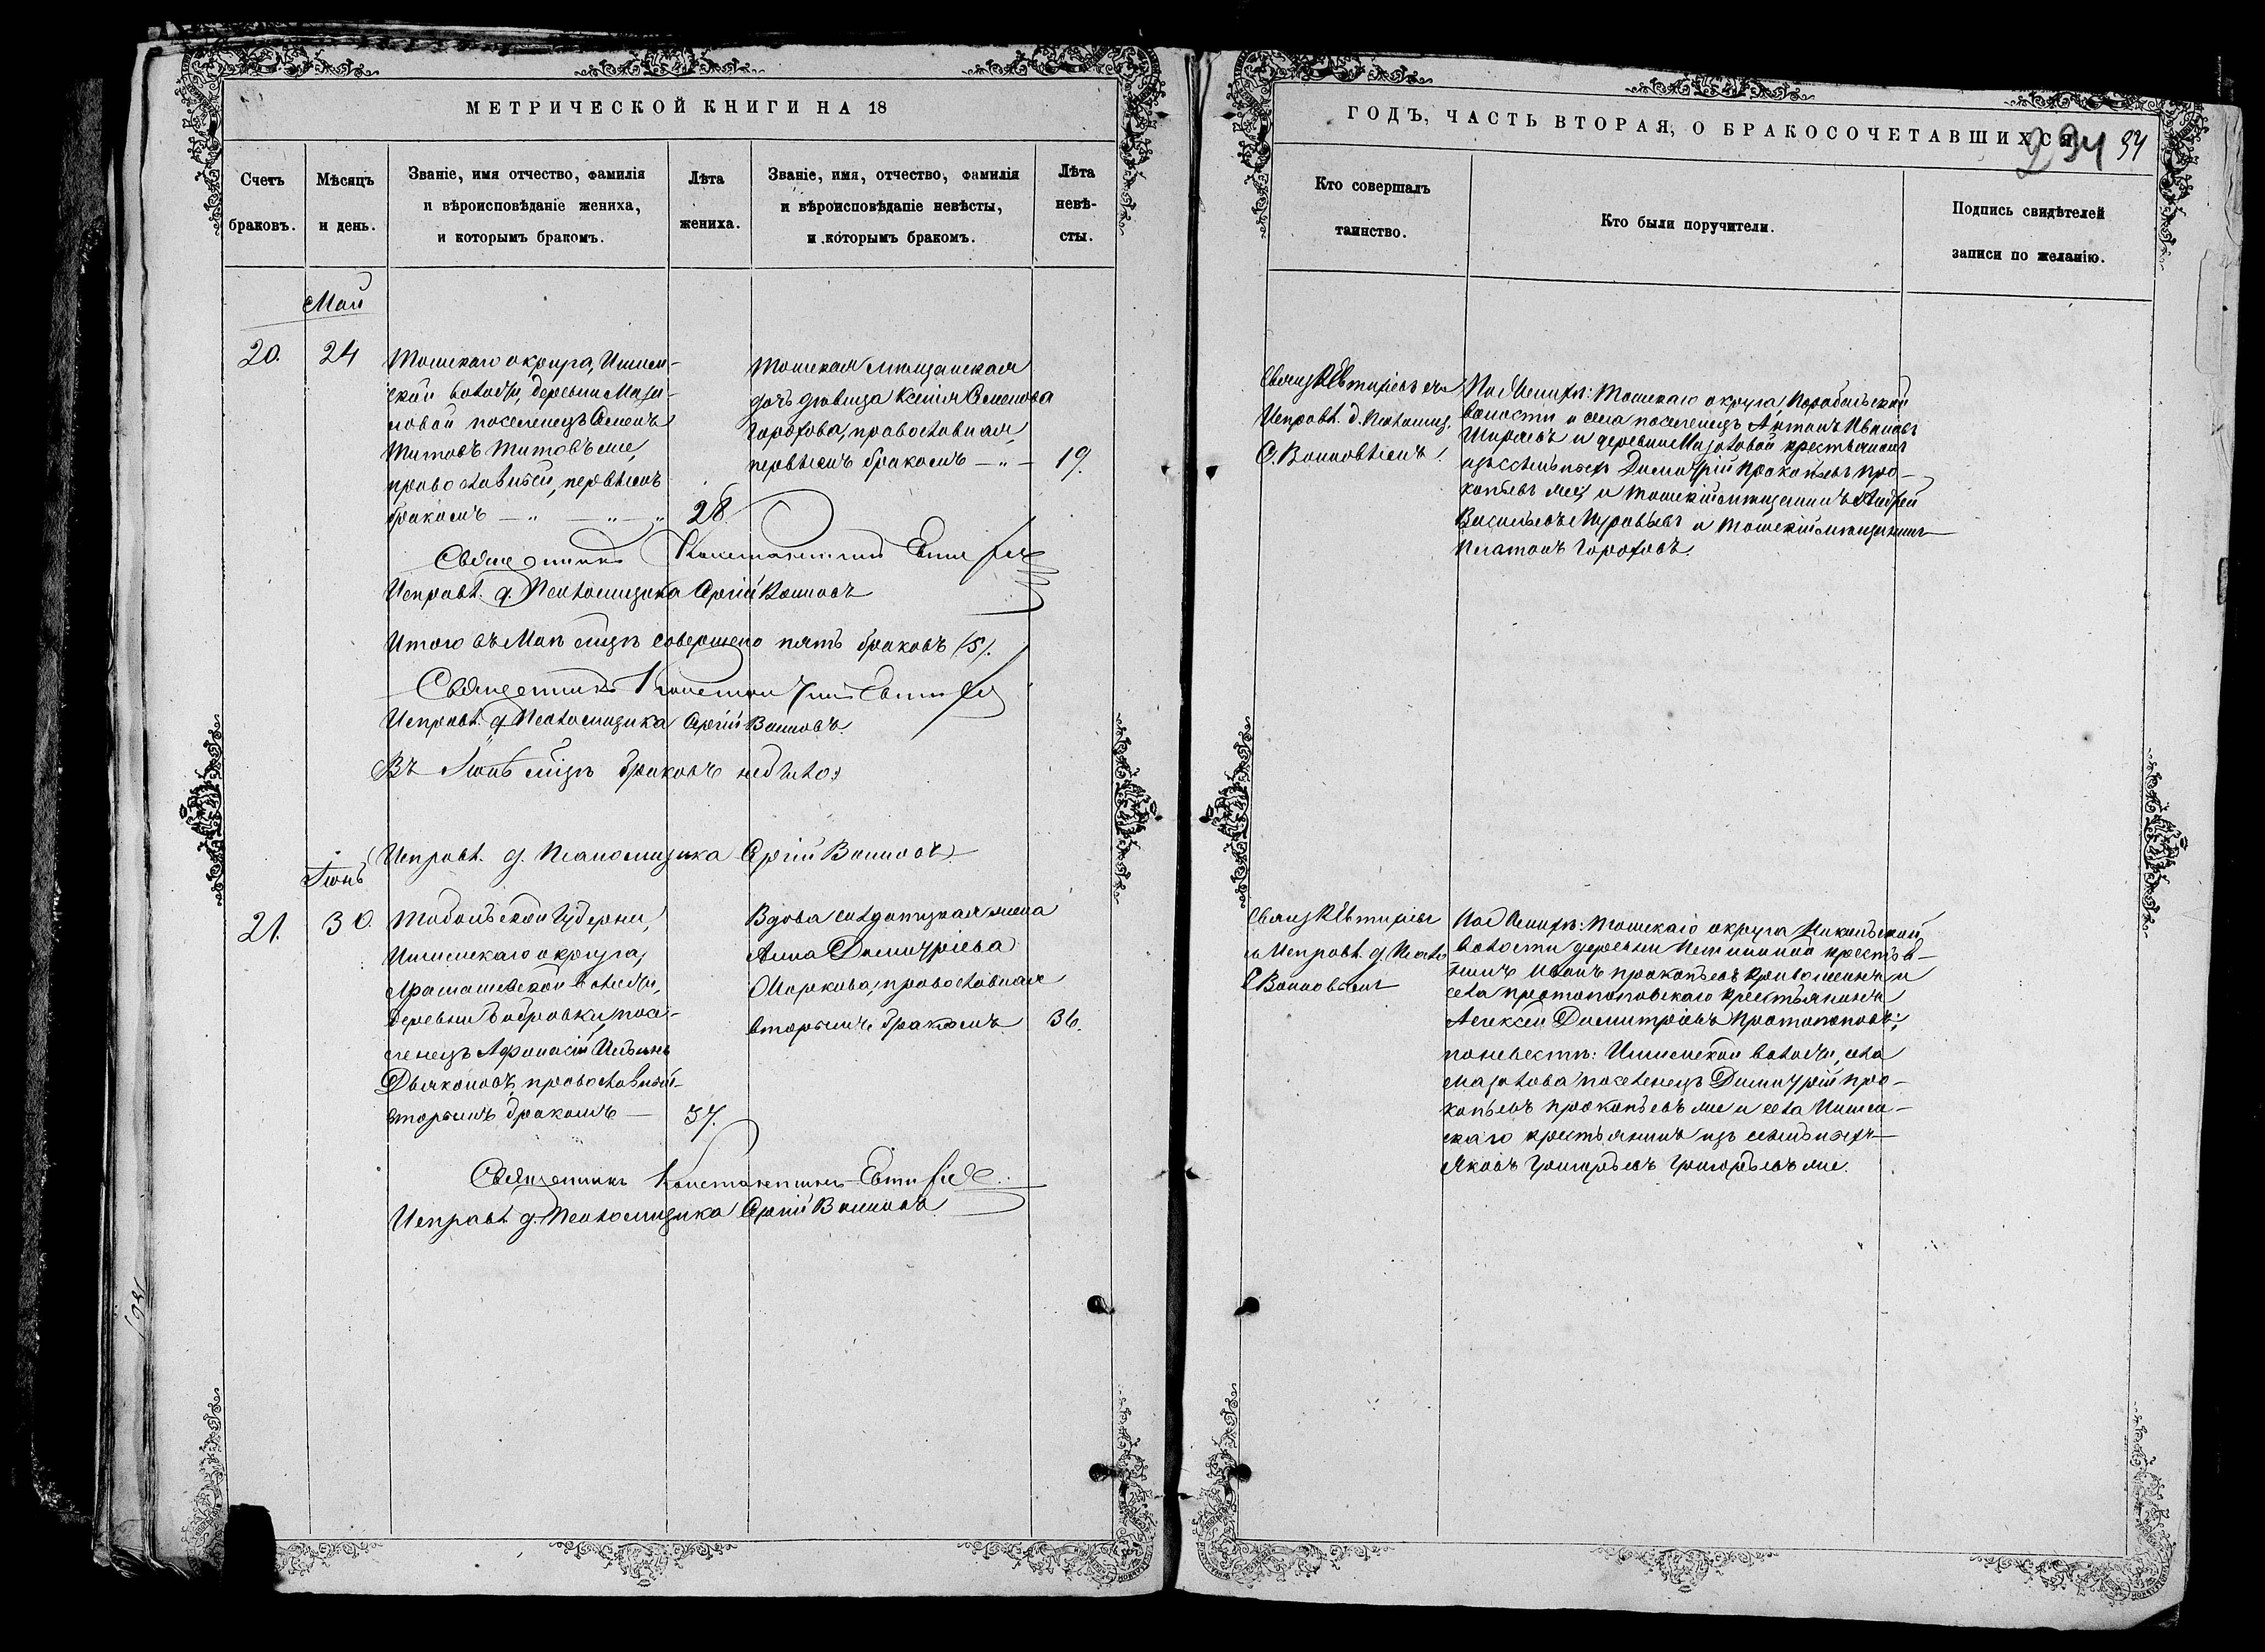 МЕТРИЧЕСКОЙ КНИГИ НА 18
Счетъ браковъ.
Мѣсяцъ и день.
Званіе, имя отчество, фамилія
и вѣроисповѣданіе жениха,
и которымъ бракомъ.
Лѣта жениха.
Званіе, имя, отчество, фамилія
и вѣроисповѣданіе невѣсты,
и которымъ бракомъ.
Лѣта невѣ-
сты.
Май
20.
24
Томскаго округа, Ишим-
ской волости, деревни Маза-
ловой поселенецъ Семенъ
Титовъ Титовъ же,
православный, первымъ
бракомъ — „ — „ — „
28.
Томская мѣщанская
дочь дѣвица Ксенія Семенова
Горохова, православная,
первымъ бракомъ — „ —
19.
Священникъ Константинъ Евтифіевъ
Исправл. д. Псаломщика Сергій Воиновъ
Итого въ Маѣ мцѣ совершено пять браковъ /5/.
Священникъ Константинъ Евтифіевъ
Исправл. д. Псаломщика Сергій Воиновъ.
Въ Іюнѣ мцѣ браковъ небыло
Исправл. д. Псаломщика Сергій Воиновъ
Іюнь
21.
30.
Тобольской Губерніи,
Ишимскаго округа,
волости,
деревни Бобровки, посе-
ленецъ Афанасій Ильинъ
Дьяконовъ, православный
вторымъ бракомъ —
37.
Вдова солдатская жена
Анна Димитріева
Маркова, православная
вторымъ бракомъ
36.
Священникъ Константинъ Евтифіевъ
Исправл. д. Псаломщика Сергій Воиновъ
ГОДЪ, ЧАСТЬ ВТОРАЯ, О БРАКОСОЧЕТАВШИХСЯ
234 94
Кто совершалъ
таинство.
Кто были поручители.
Подпись свидѣтелей
записи по желанію.
Свящ. К Евтифіевъ съ
Исправл. д. Псаломщ.
С. Воиновымъ.
По Женихѣ: Томскаго округа Парабельской
волости и села поселенецъ Антонъ Ивановъ
и деревни Мазаловой крестьянинъ
изъ ссыльныхъ Димитрій Прокопьевъ Про-
копьевъ же, и Томскій мѣщанинъ Андрей
Васильевъ Муравьевъ и Томскій мѣщанинъ
Платонъ Гороховъ.
Свящ. К Евтифіевъ
съ Исправл. д. Псало
С Воиновымъ
По Женихѣ: Томскаго округа Николаевской
волости деревни крестья-
нинъ Иванъ Прокопьевъ и
села Протопоповскаго крестьянинъ
Алексѣй Димитріевъ Протопоповъ;
по невѣстѣ: Ишимской волости, села
Мазалова поселенецъ Димитрій Про-
копьевъ Прокопьевъ же и села Ишим-
скаго крестьянинъ изъ ссыльныхъ
Яковъ Григорьевъ Григорьевъ же.